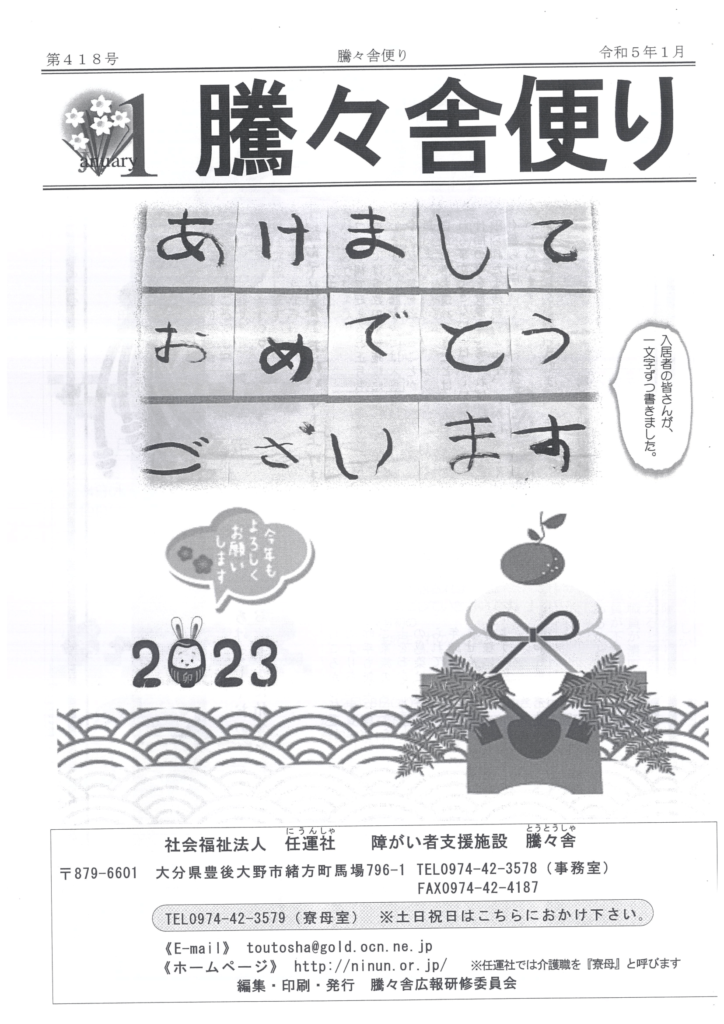 第418号
騰々舎便り
令和5年1月
January 1
騰々舎便り
あけまして
おめでとう
ございます
入居者の皆さんが、
一文字ずつ書きました。
今年も
よろしく
お願い
します
2023
卯
社会福祉法人 任運社 障がい者支援施設 騰々舎
にうんしゃ とうとうしゃ
〒879-6601 大分県豊後大野市緒方町馬場796-1 TEL0974-42-3578(事務室)
FAX0974-42-4187
TEL0974-42-3579(寮母室) ※土日祝日はこちらにおかけ下さい。
《E-mail》 toutosha@gold.ocn.ne.jp
《ホームページ》 http://ninun.or.jp/ ※任運社では介護職を『寮母』と呼びます
編集・印刷・発行 騰々舎広報研修委員会